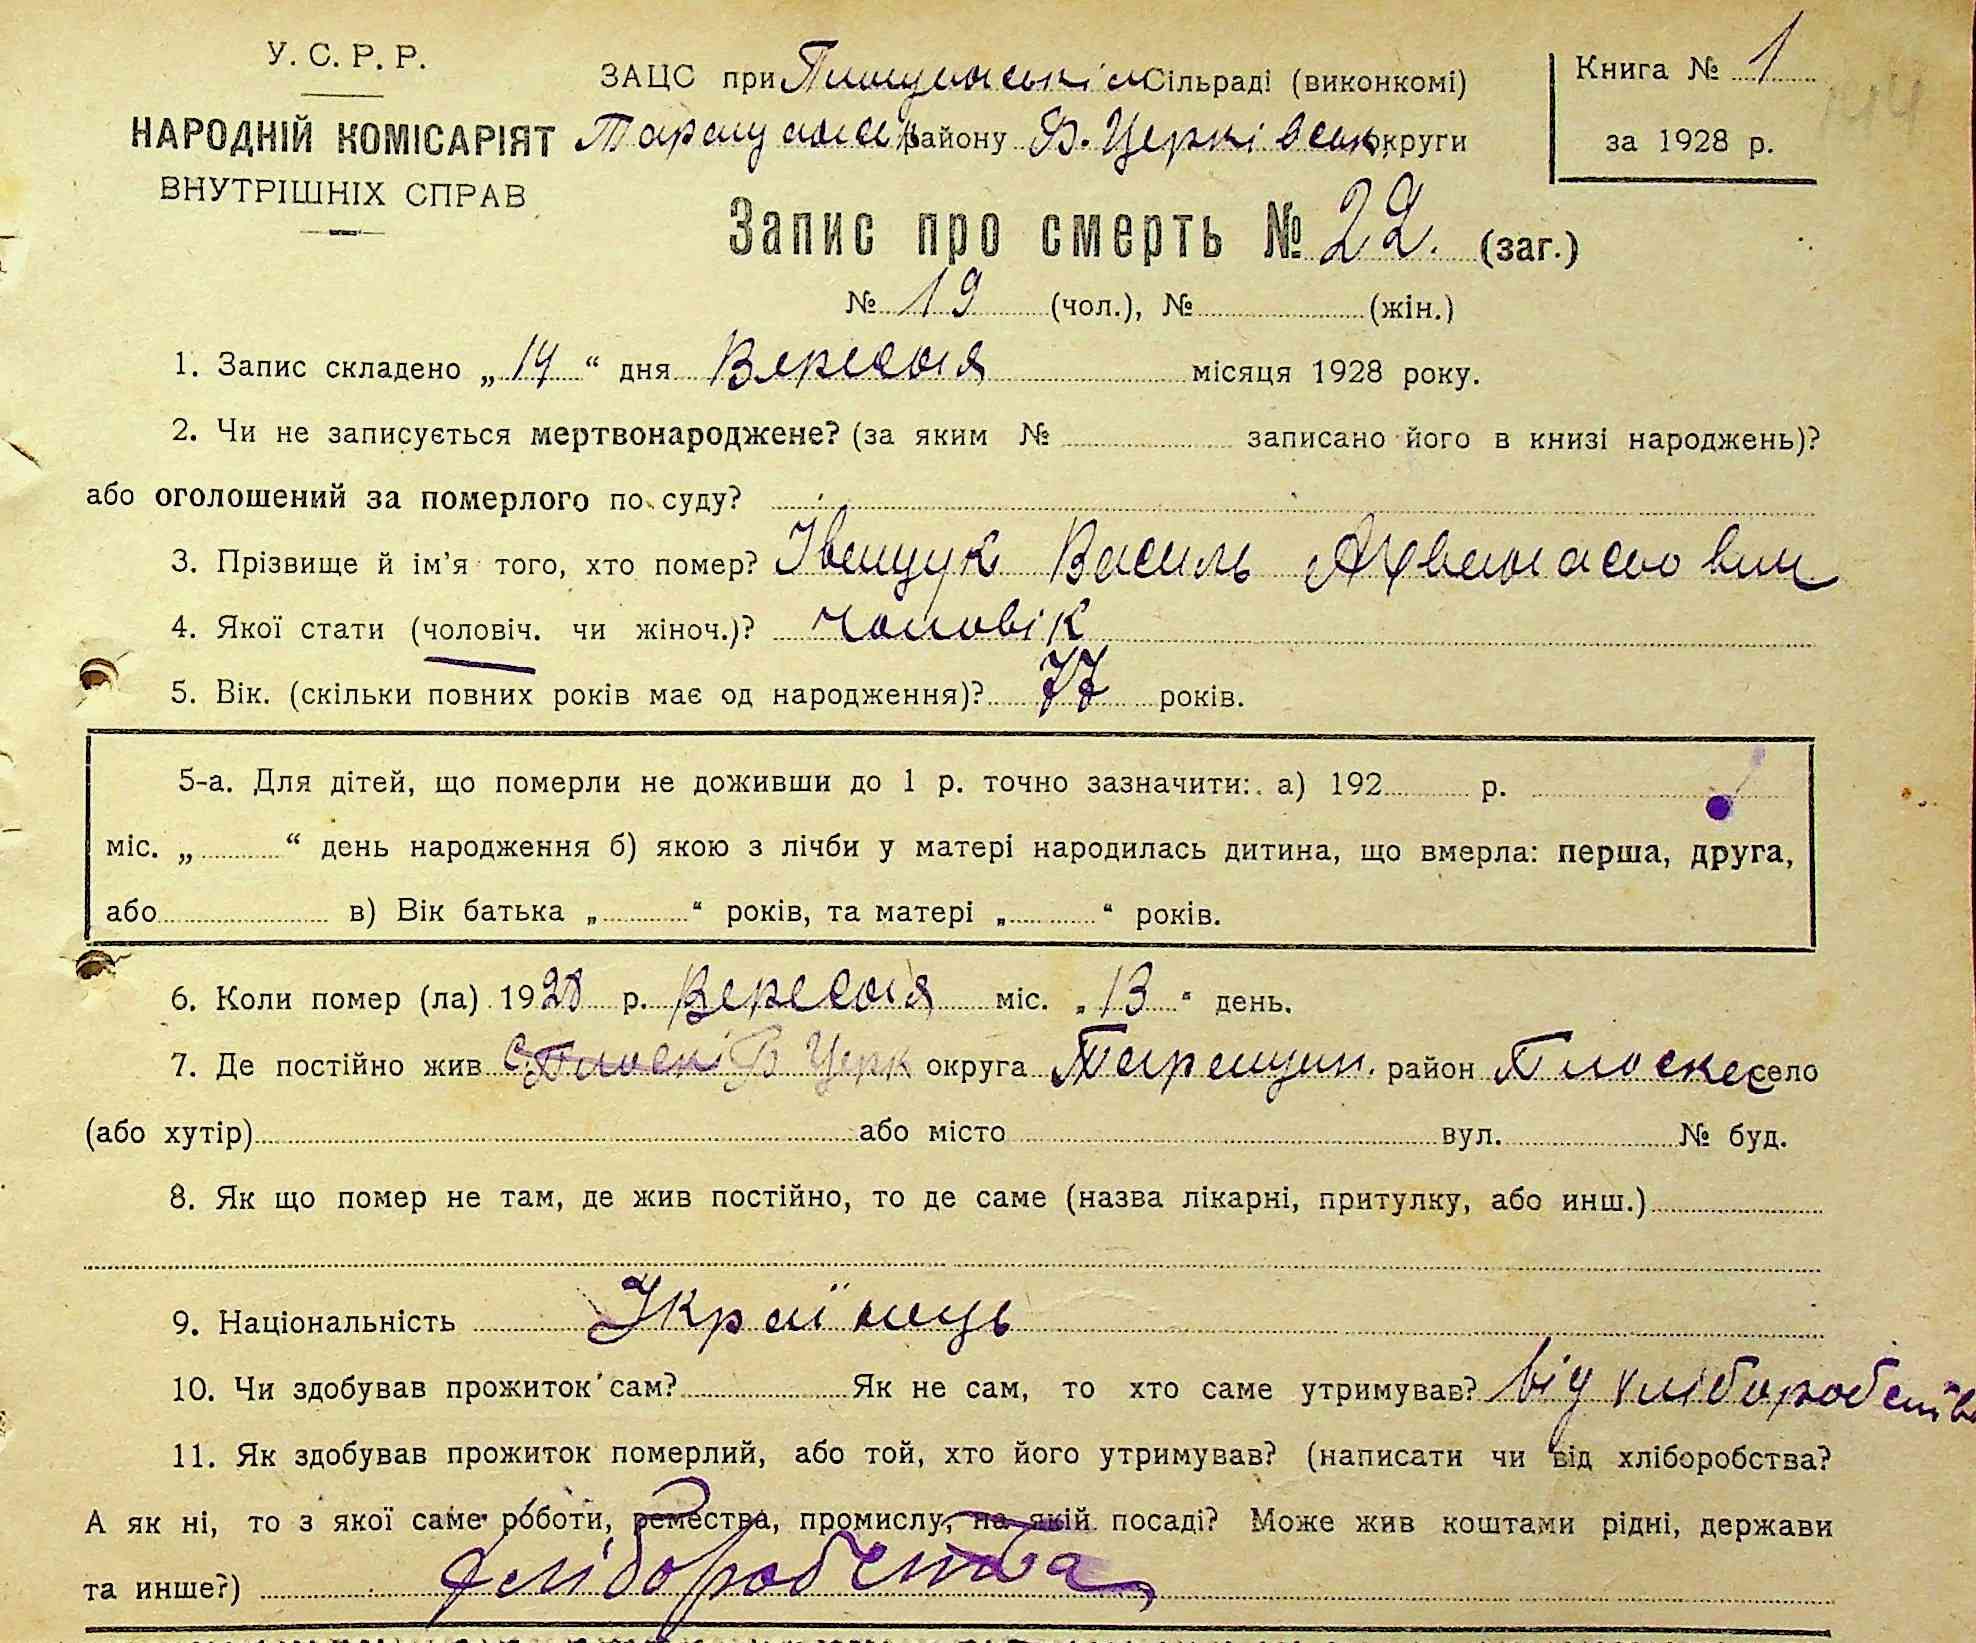 У. С. Р. Р.
НАРОДНІЙ КОМІСАРІЯТ
ВНУТРІШНІХ СПРАВ
ЗАЦС при Сільраді (виконкомі)
району Б. Церківськ. округи
Книга № 1
за 1928 р.
144
Запис про смерть № 22. (заг.)
№ 19 (чол.), № (жін.)
1. Запис складено „14“ дня Вересня місяця 1928 року.
2. Чи не записується мертвонароджене? (за яким № записано його в книзі народжень)?
або оголошений за померлого по суду?
3. Прізвище й ім'я того, хто помер? Іващук Василь Афанасович
4. Якої стати (чоловіч. чи жіноч.)? чоловік
5. Вік. (скільки повних років має од народження)? 77 років.
5-а. Для дітей, що померли не доживши до 1 р. точно зазначити: а) 192 р.
міс. „ “ день народження б) якою з лічби у матері народилась дитина, що вмерла: перша, друга,
або в) Вік батька „ “ років, та матері „ “ років.
6. Коли помер (ла) 1928 р. Вересня міс. „13“ день.
7. Де постійно жив с. Плоскі Б Церк округа Таращан. район Плоске село
(або хутір) або місто вул. № буд.
8. Як що помер не там, де жив постійно, то де саме (назва лікарні, притулку, або инш.)
9. Національність Українець
10. Чи здобував прожиток сам? Як не сам, то хто саме утримував? від хліборобства
11. Як здобував прожиток померлий, або той, хто його утримував? (написати чи від хліборобства?
А як ні, то з якої саме роботи, ремества, промислу, на якій посаді? Може жив коштами рідні, держави
та инше?) хліборобства